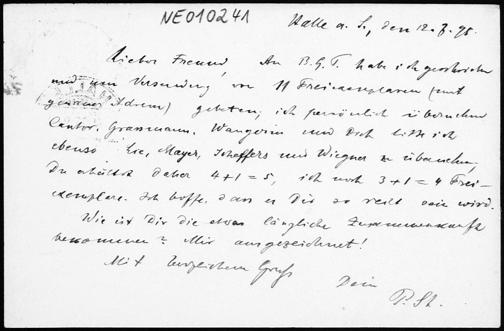 NE010241
Halle a. S., den 12. 7. 95.
Lieber Freund! An B.G.T. habe ich geschrieben
und um Versendung von 11 Freiexemplaren (mit
genauer Adresse) gebeten; ich persönlich übernehme
Cantor, Grassmann, Wangerin und Dich bitte ich
ebenso Lie, Mayer, Scheffers und Wiegner zu übernehmen,
Du erhältst daher 4+1=5, ich noch 3+1=4 Frei-
exemplare. Ich hoffe, dass es Dir so recht sein wird.
Wie ist Dir die etwas längliche Zusammenkunft
bekommen? Mir ausgezeichnet!
Mit herzlichem Gruß
Dein
P. St.